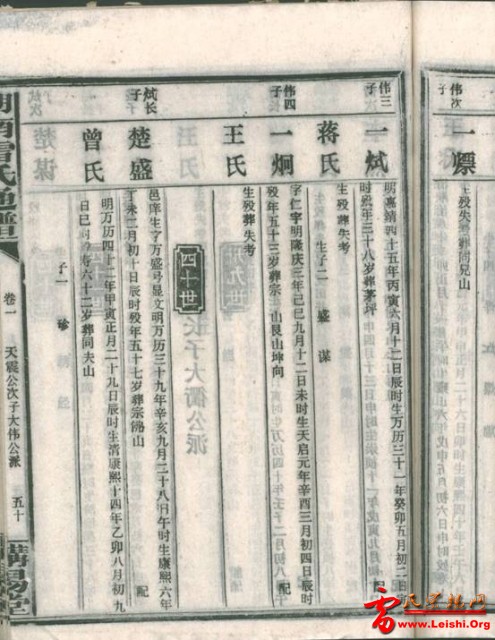 伟次子
一㷼
生殁失考葬尚兄山
伟三子
一斌
明嘉靖四十五年丙寅六月十二日辰时生万历三十一年癸卯五月初二日
时殁年三十八岁葬茅坪 配
蒋氏
生殁葬失考 生子二 盛 谋
伟四子
一炯
字仁宇明隆庆三年己巳九月十二日未时生天启元年辛酉三月初四日辰时
殁年五十三岁葬宗 山艮山坤向 配
王氏
生殁葬失考
四十世
斌长子
楚盛
邑庠生字万盛号显文明万历三十九年辛亥九月二十八日午时生康熙六年
丁未二月初二日辰时殁年五十七岁葬宗德山 配
曾氏
明万历四十二年甲寅正月二十九日辰时生清康熙十四年乙卯八月初九
日巳时殁寿六十二岁葬同夫山
子一 珍
湖南雷氏通谱
卷一
天震公次子大伟公派
五十
www.Leishi.Org